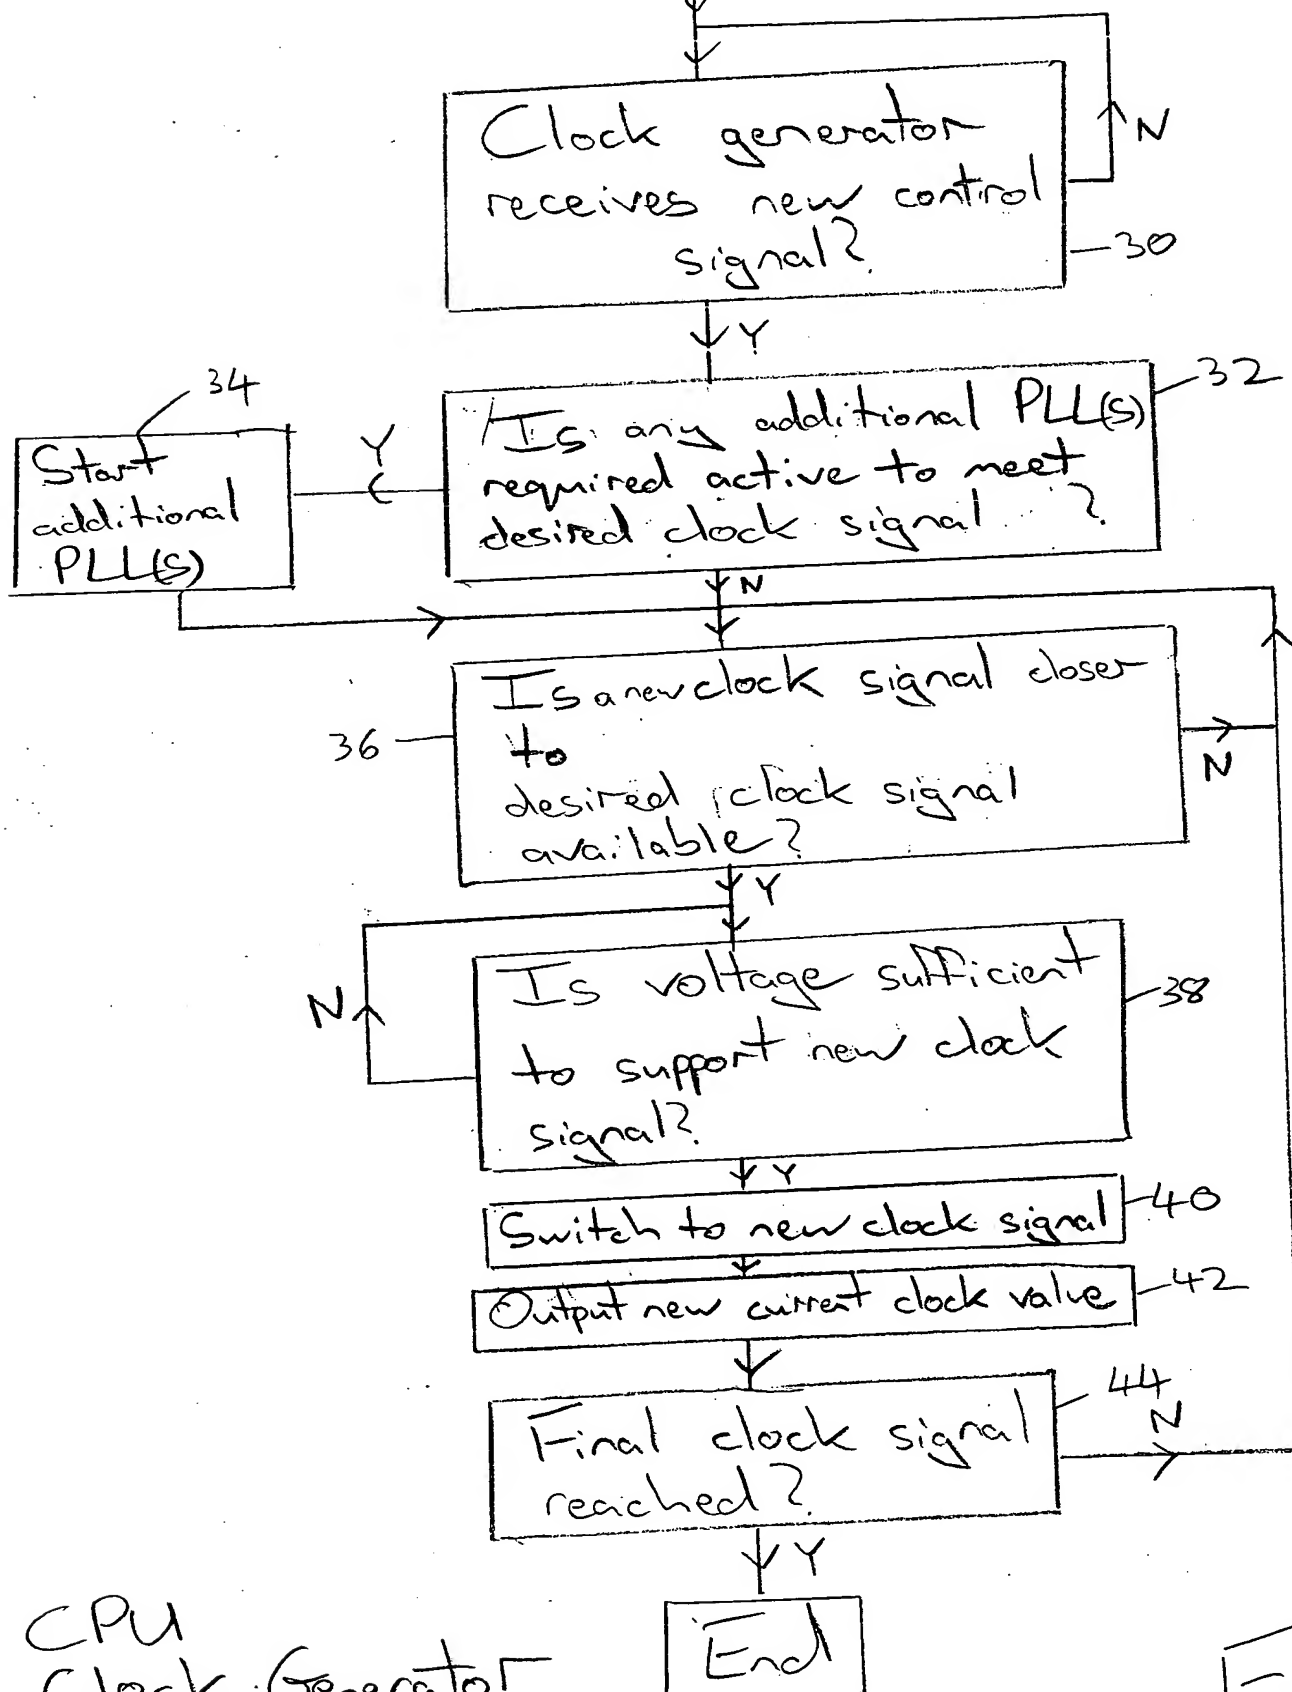 Clock generator
receives new control
signal?
N
30
Y
34
32
Start
additional
PLL(S)
Y
Is any additional PLL(S)
required active to meet
desired clock signal ?
N
36
Is a new clock signal closer
to
desired clock signal
available?
N
Y
N
Is voltage sufficient
to support new clock
signal?
38
Y
Switch to new clock signal
40
Output new current clock value
42
Final clock signal
reached?
44
N
Y
CPU
Clock Generator
End